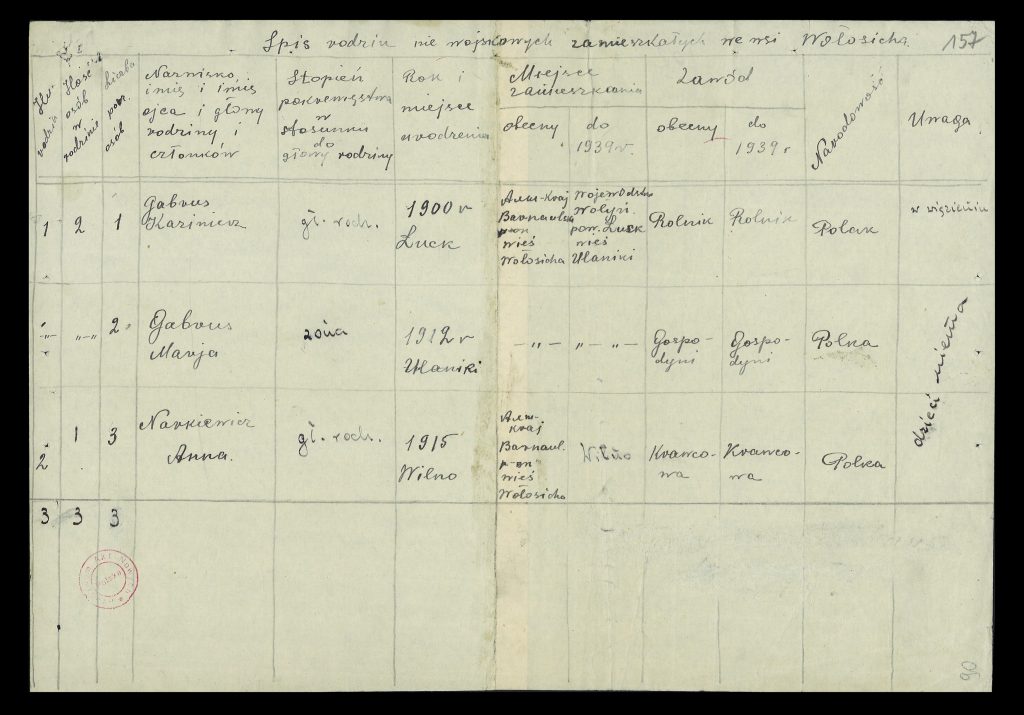 Spis rodzin nie wojskowych zamieszkałych we wsi Wołosicha.
157
Ilość
osób
w
rodzinie
Liczba
porz.
osób
Nazwisko,
imię i imię
ojca i głowy
rodziny i
członków
Stopień
pokrewęstwa
w
stosunku
do
głowy rodziny
Rok i
miejsce
urodzenia
Miejsce
zamieszkania
obecny
do
1939 r.
Zawód
obecny
do
1939 r
Narodowość
Uwaga
1
2
1
Gabrus
Kazimierz
gł. rodz.
1900 r
Łuck
Алт-Kraj
Barnaulski
р-он
wieś
Wołosicha
Wojewódstw
Wołyń.
pow. Łuck
wieś
Ułaniki
Rolnik
Rolnik
Polak
w więzieniu
-„-
„-„
2
Gabrus
Marja
żona
1912 r
Ułaniki
- „ - „ - „ -
Gospo-
dyni
Gospo-
dyni
Polka
dzieci niema
2
1
3
Narkiewicz
Anna.
gł. rodz.
1915
Wilno
Алт-
Kraj
Barnaul.
р-он
wieś
Wołosicha
Wilno
Krawco-
wa
Krawco-
wa
Polka
3
3
3
90